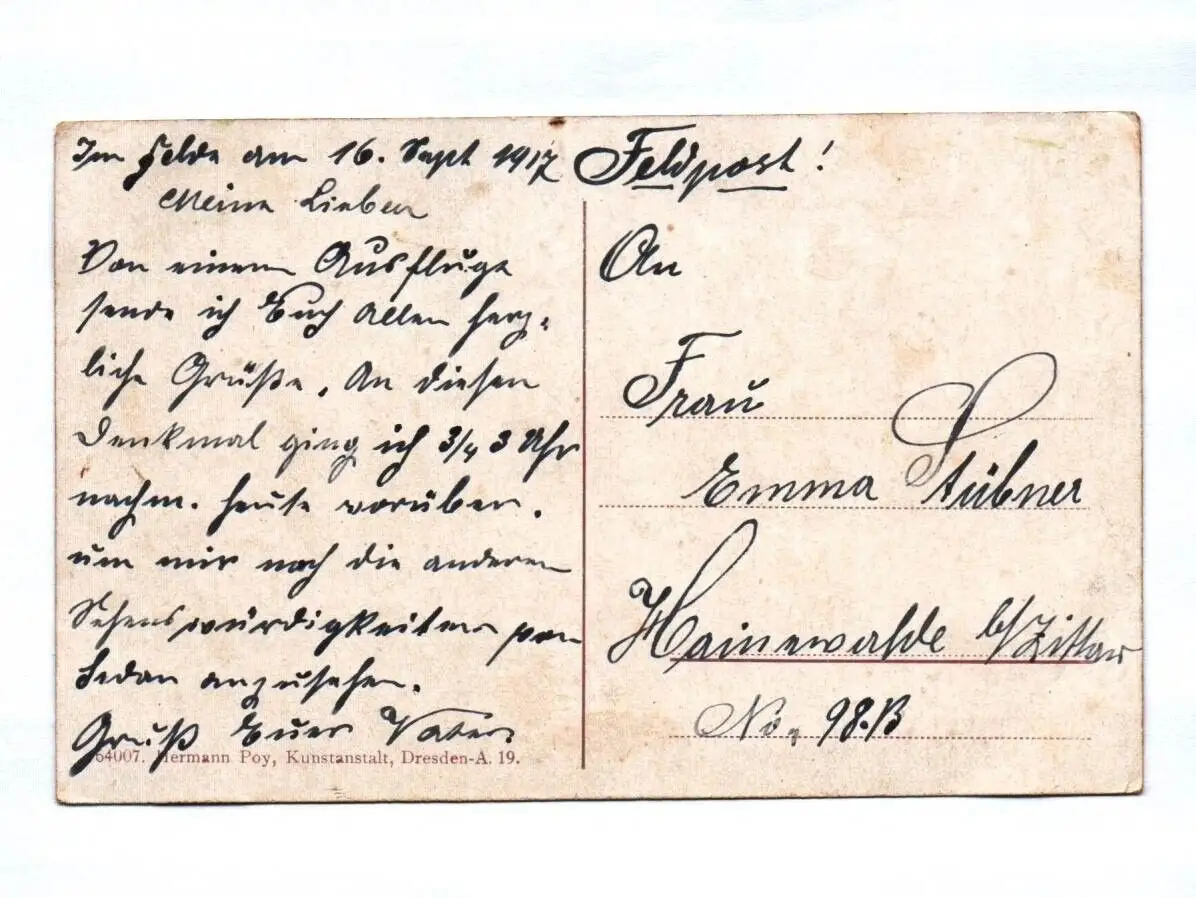 Im Felde am 16. Sept 1917
Meine Lieben
Von einem Ausfluge
sende ich Euch Allen herz-
liche Grüße. An diesen
Denkmal ging ich 3/4 3 Uhr
nachm. heute vorüber.
um mir noch die anderen
Sehenswürdigkeiten von
Sedan anzusehen.
Gruß Euer Vater.
64007. Hermann Poy, Kunstanstalt, Dresden-A. 19.
Feldpost!
An
Frau
Emma Stübner
Hainewalde b/Zittau
No, 98.B